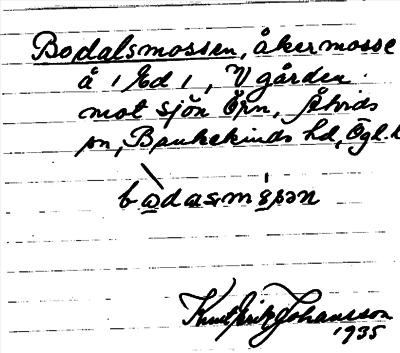 Bodalsmossen, åkermosse
å 1 Ed 1, V gården
mot sjön Örn, Åtvids
sn, Bankekinds hd, Ögl.
Knut Erik Johansson
1935